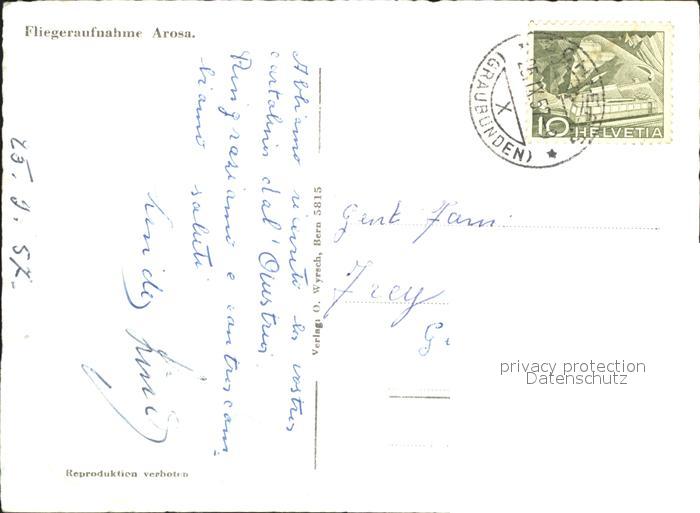 Fliegeraufnahme Arosa.
Abbiamo ricevuto la vostra
cartolina dal'Oustria.
Ringraziamo e contracam-
biamo saluti
25. 9. 57.
Verlag: O. Wyrsch, Bern 5815
Reproduktion verboten
(GRAUBÜNDEN)
10 HELVETIA
Gent Fam.
Frey
privacy protection
Datenschutz